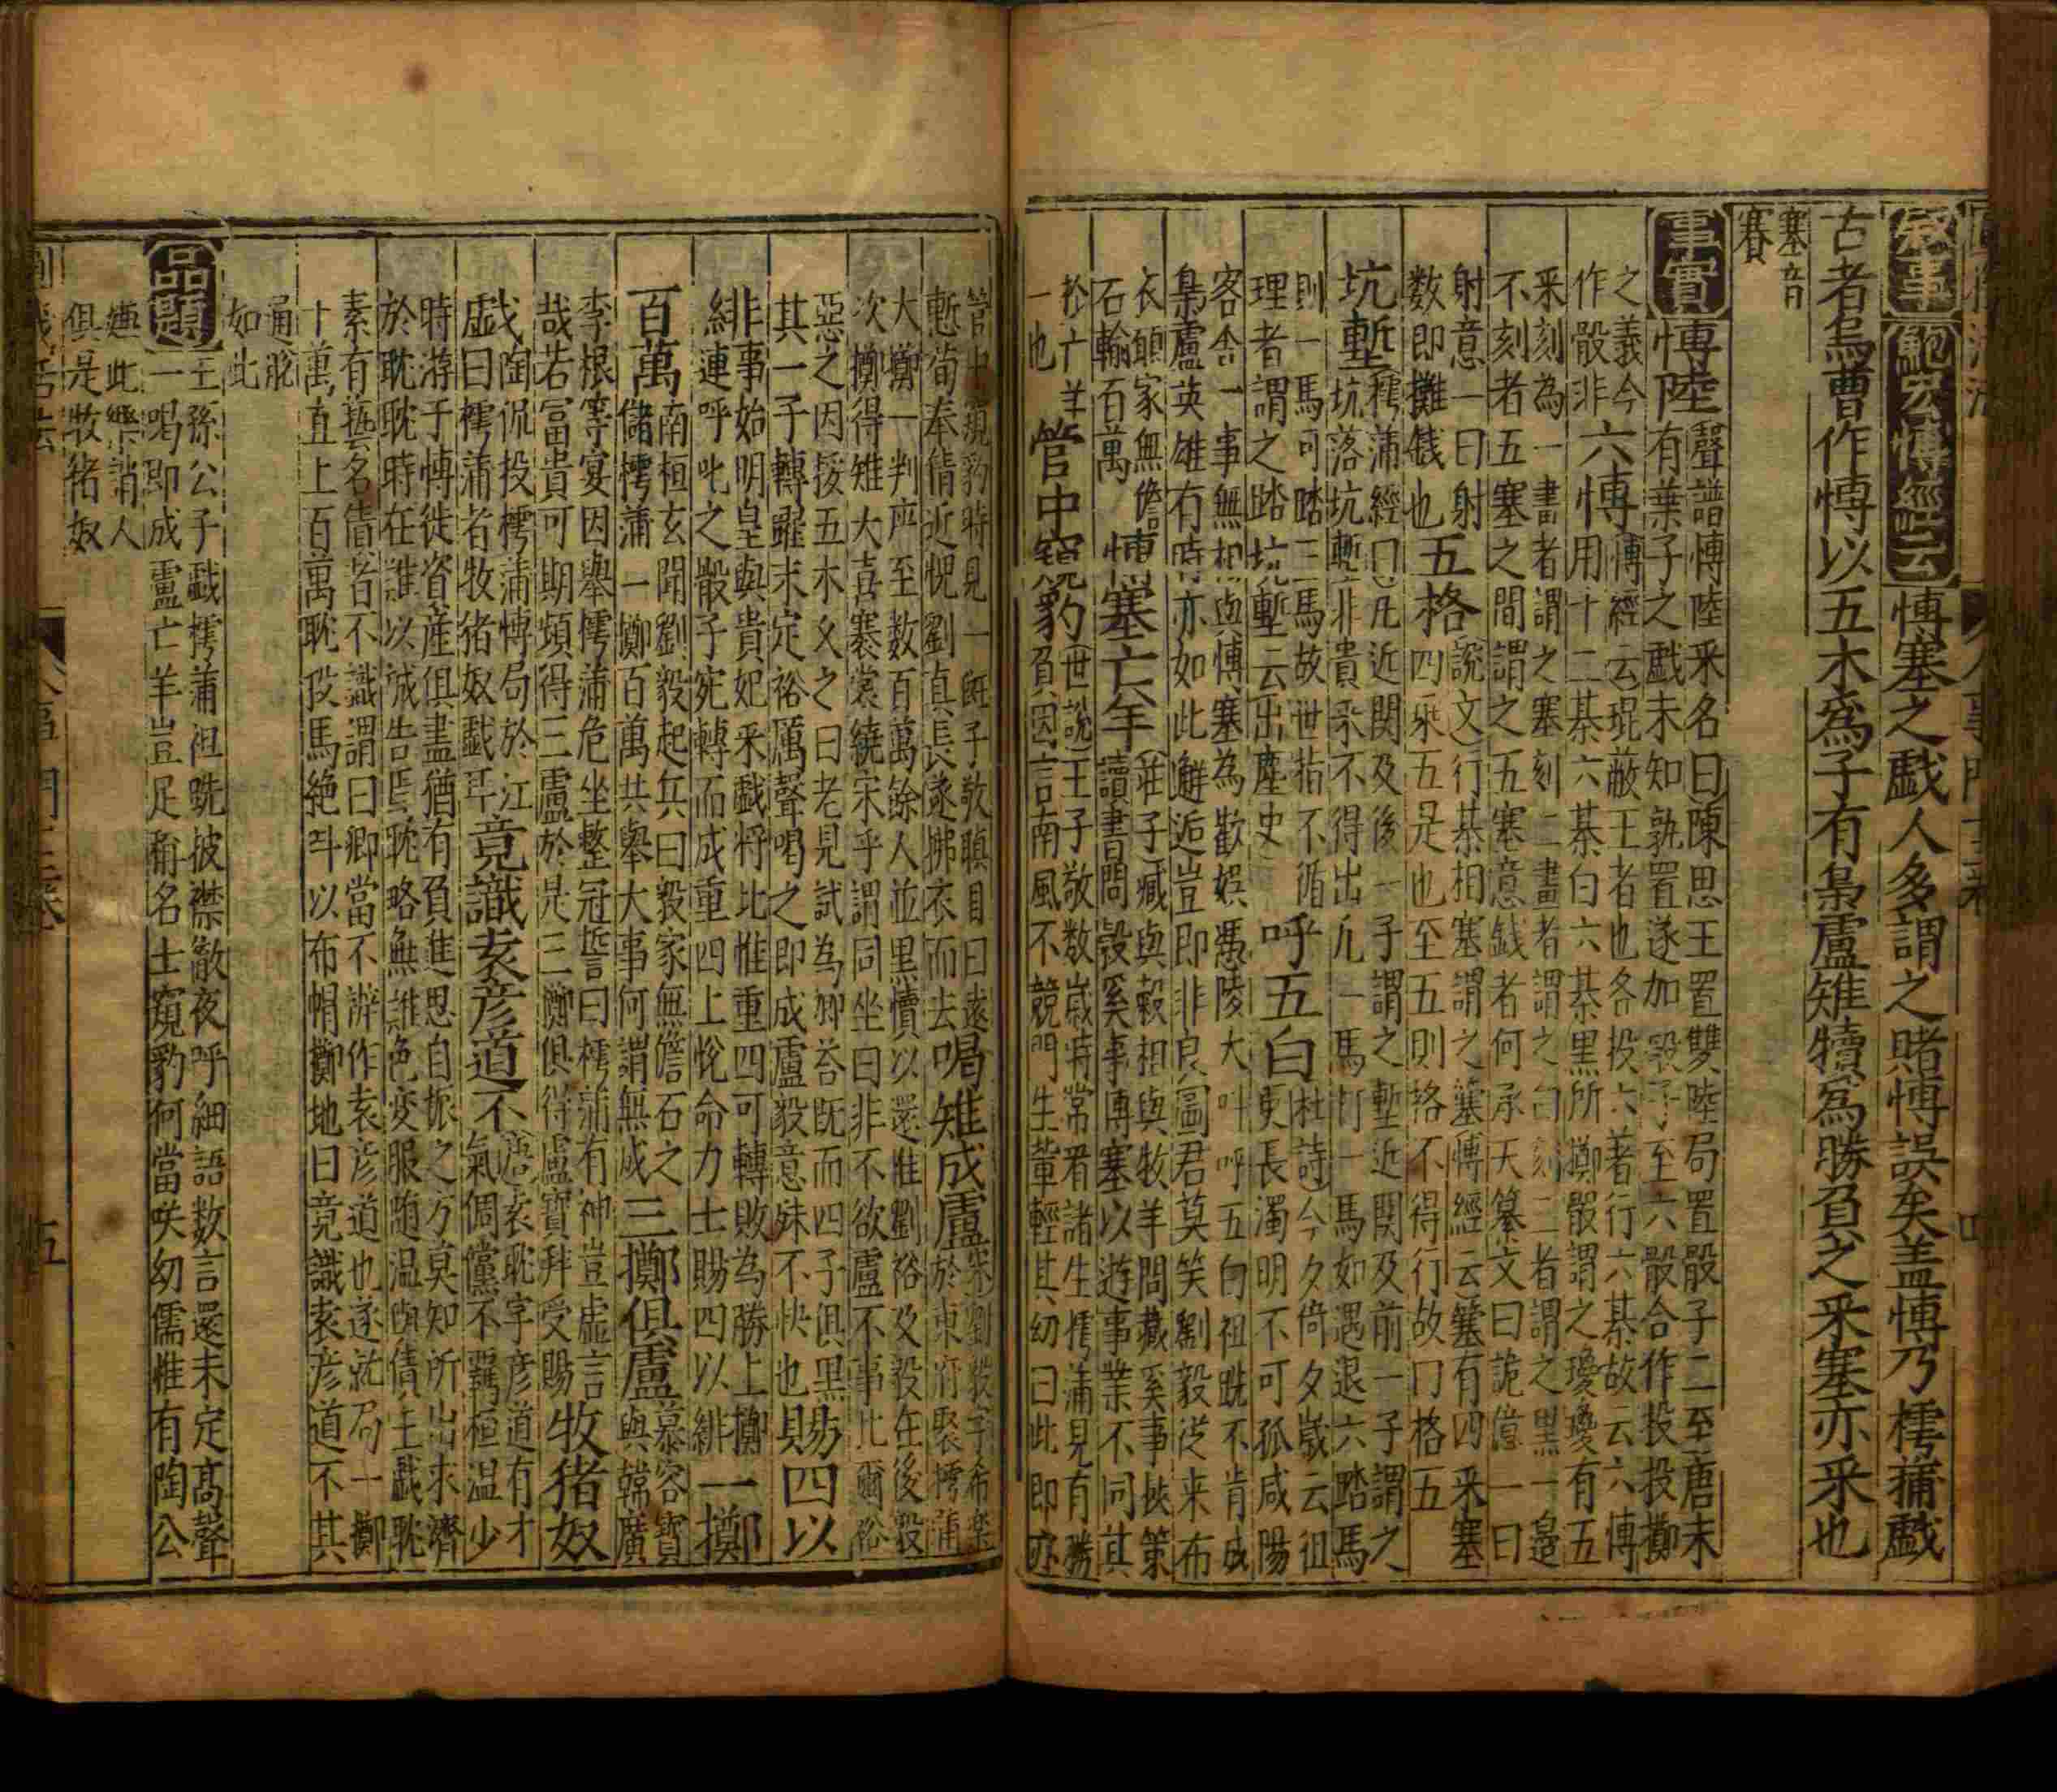 敘事 鮑宏愽經云 愽塞之戲人多謂之賭愽誤矣盖愽乃樗蒲戲
古者烏曹作愽以五木為子有梟盧雉犢為勝負之采塞亦采也
塞音
賽
事實 愽陸
聲譜愽陸采名曰陳思王置雙陸局置骰子二至唐末
有葉子之戲未知孰置遂加骰子至六骰合作投投擲
之義今
作骰非
六愽
愽經云琨蔽王者也各投六著行六棊故云六愽
用十二棊六棊白六棊黑所擲骰謂之瓊瓊有五
采刻為一畫者謂之塞刻二畫者謂之白刻三者謂之黑一邉
不刻者五塞之間謂之五塞意錢者何承天纂文曰詭億一曰
射意一曰射
数即攤錢也
五格
說文行棊相塞謂之簺愽經云簺有四采塞
四乘五是也至五則格不得行故囗格五
坑塹
樗蒲經曰凡近関及後一子謂之塹近関及前一子謂之
坑落坑塹非貴采不得出凢一馬打一馬如遇退六踏馬
則一馬可踏三馬故世指不循
理者謂之踏坑塹云出塵史
呼五白
杜詩今夕倚夕歲云徂
更長濁明不可孤咸陽
客舎一事無相與愽塞為歡娯馮陵大呌呼五白袒跣不肯成
梟盧英雄有時亦如此邂逅豈即非良圖君莫笑劉毅從来布
衣願家無儋
石輸百萬
愽塞亡羊
莊子臧與榖相與牧羊問臧奚事挾策
讀書問榖奚事愽塞以逰事業不同其
扵亡羊
一也
管中窺豹
世說王子敬数歲時常看諸生樗蒲見有勝
負因言南風不競門生軰輕其幼曰此即亦
管中窺豹時見一班子敬瞋目曰遠
慙荀奉倩近愧劉真長遂拂衣而去
喝雉成盧
宋劉毅字布楽
於東府聚樗蒲
大擲一判座至数百萬餘人並黒犢以還惟劉裕及毅在後毅
次擲得雉大喜褰裳繞宋乎謂同坐曰非不欲盧不事比爾裕
惡之因挼五木乆之曰老見試為卿荅既而四子俱黒
其一子轉躍末定裕厲聲喝之即成盧毅意殊不快也
賜四以
緋
事始明皇與貴妃采戲将比惟重四可轉敗為勝上擲
連呼叱之骰子宛轉而成重四上悅命力士賜四以緋
一擲
百萬
南桓玄聞劉毅起兵曰毅家無儋石之
儲樗蒲一擲百萬共舉大事何謂無成
三擲俱盧
慕容寳
與韓廣
李根等宴因舉樗蒲危坐整冠誓曰樗蒲有神豈虛言
哉若冨貴可期頻得三盧於是三擲俱得盧寳拜受賜
牧猪奴
戯
陶侃投樗蒲愽局於江
曰樗蒲者牧猪奴戲耳
竟識袁彦道不
唐袁耽字彦道有才
氣倜儻不羈桓温少
時游于愽徒資産俱盡猶有負進思自振之方莫知所出求濟
於耽耽時在艱以試告焉耽略無難色变服随温與債主戲耽
素有藝名債者不識謂曰卿當不辦作袁彦道也遂就局一擲
十萬直上百萬耽投馬絶呌以布帽擲地曰竟識袁彦道不其
通脫
如此
品題
王孫公子戲樗蒲袒跣披襟敵夜呼細語数言還未定髙聲
一喝即成盧亡羊豈足稱名士窺豹何當咲幼儒惟有陶公
嫌此樂誚人
俱是牧猪奴